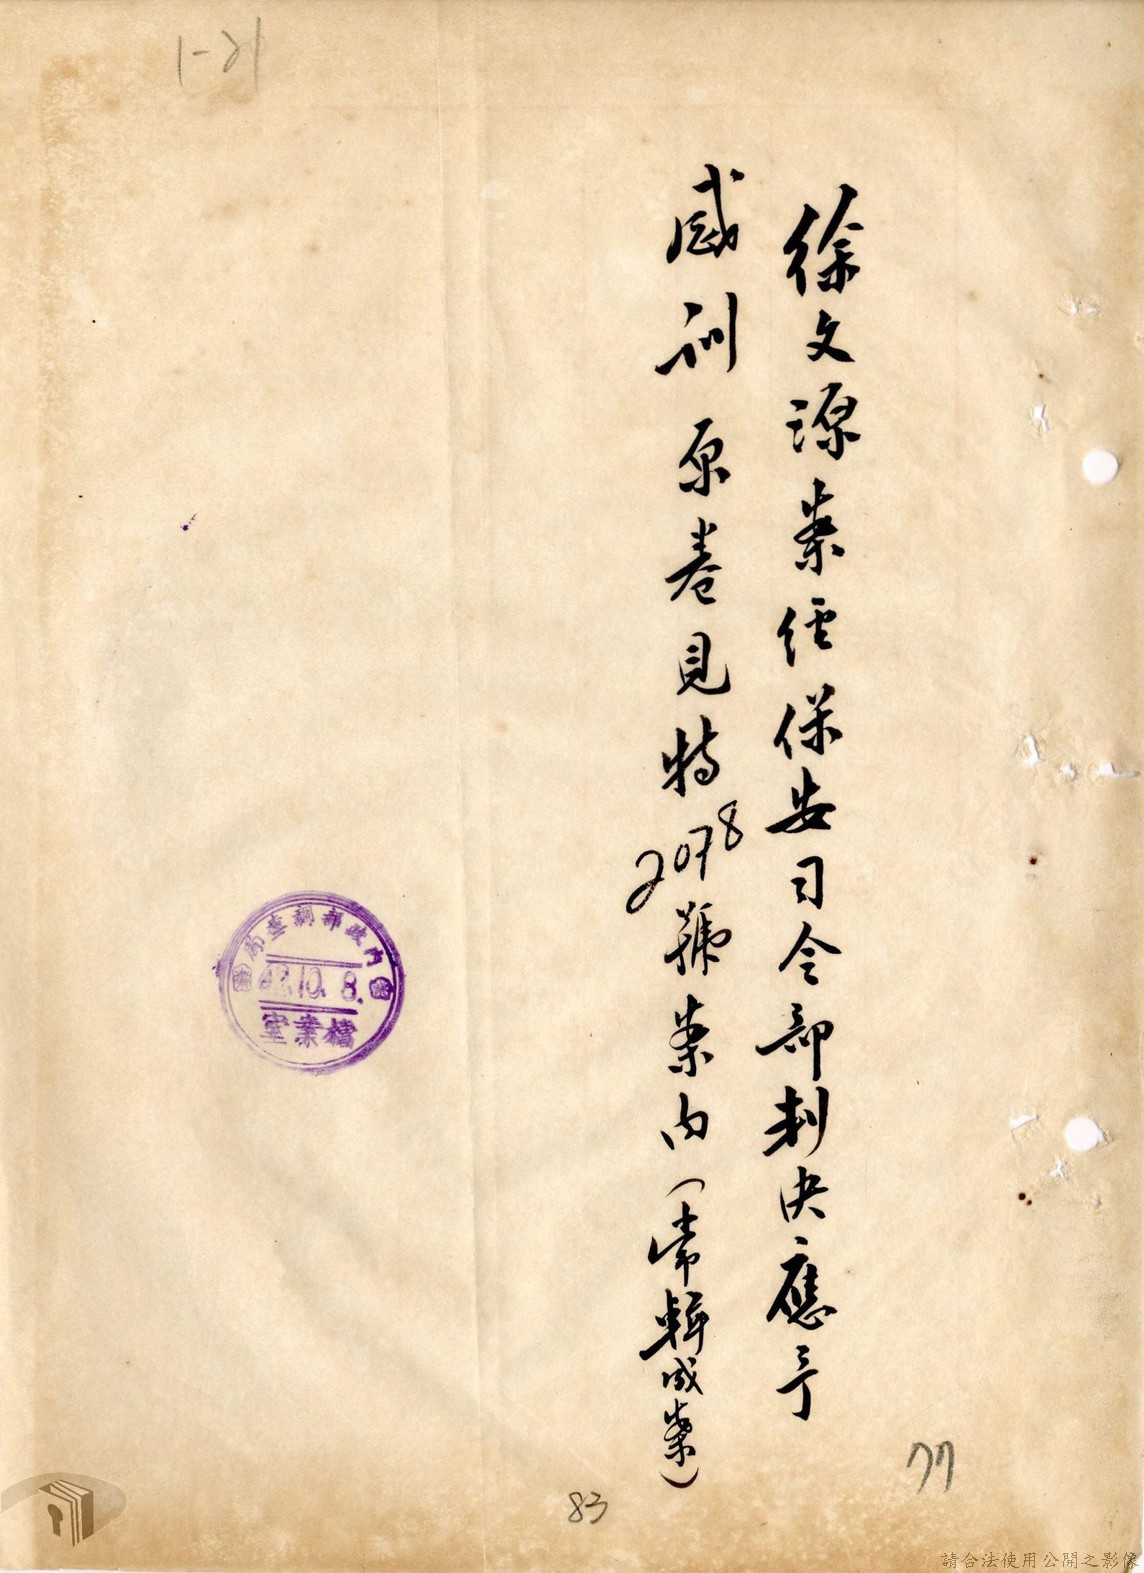 1-21
徐文源案經保安司令部判決應予
感訓原卷見特2078號案內(常輯成案)
內政部調查局
43.10.8.
檔案室
77
83
請合法使用公開之影像